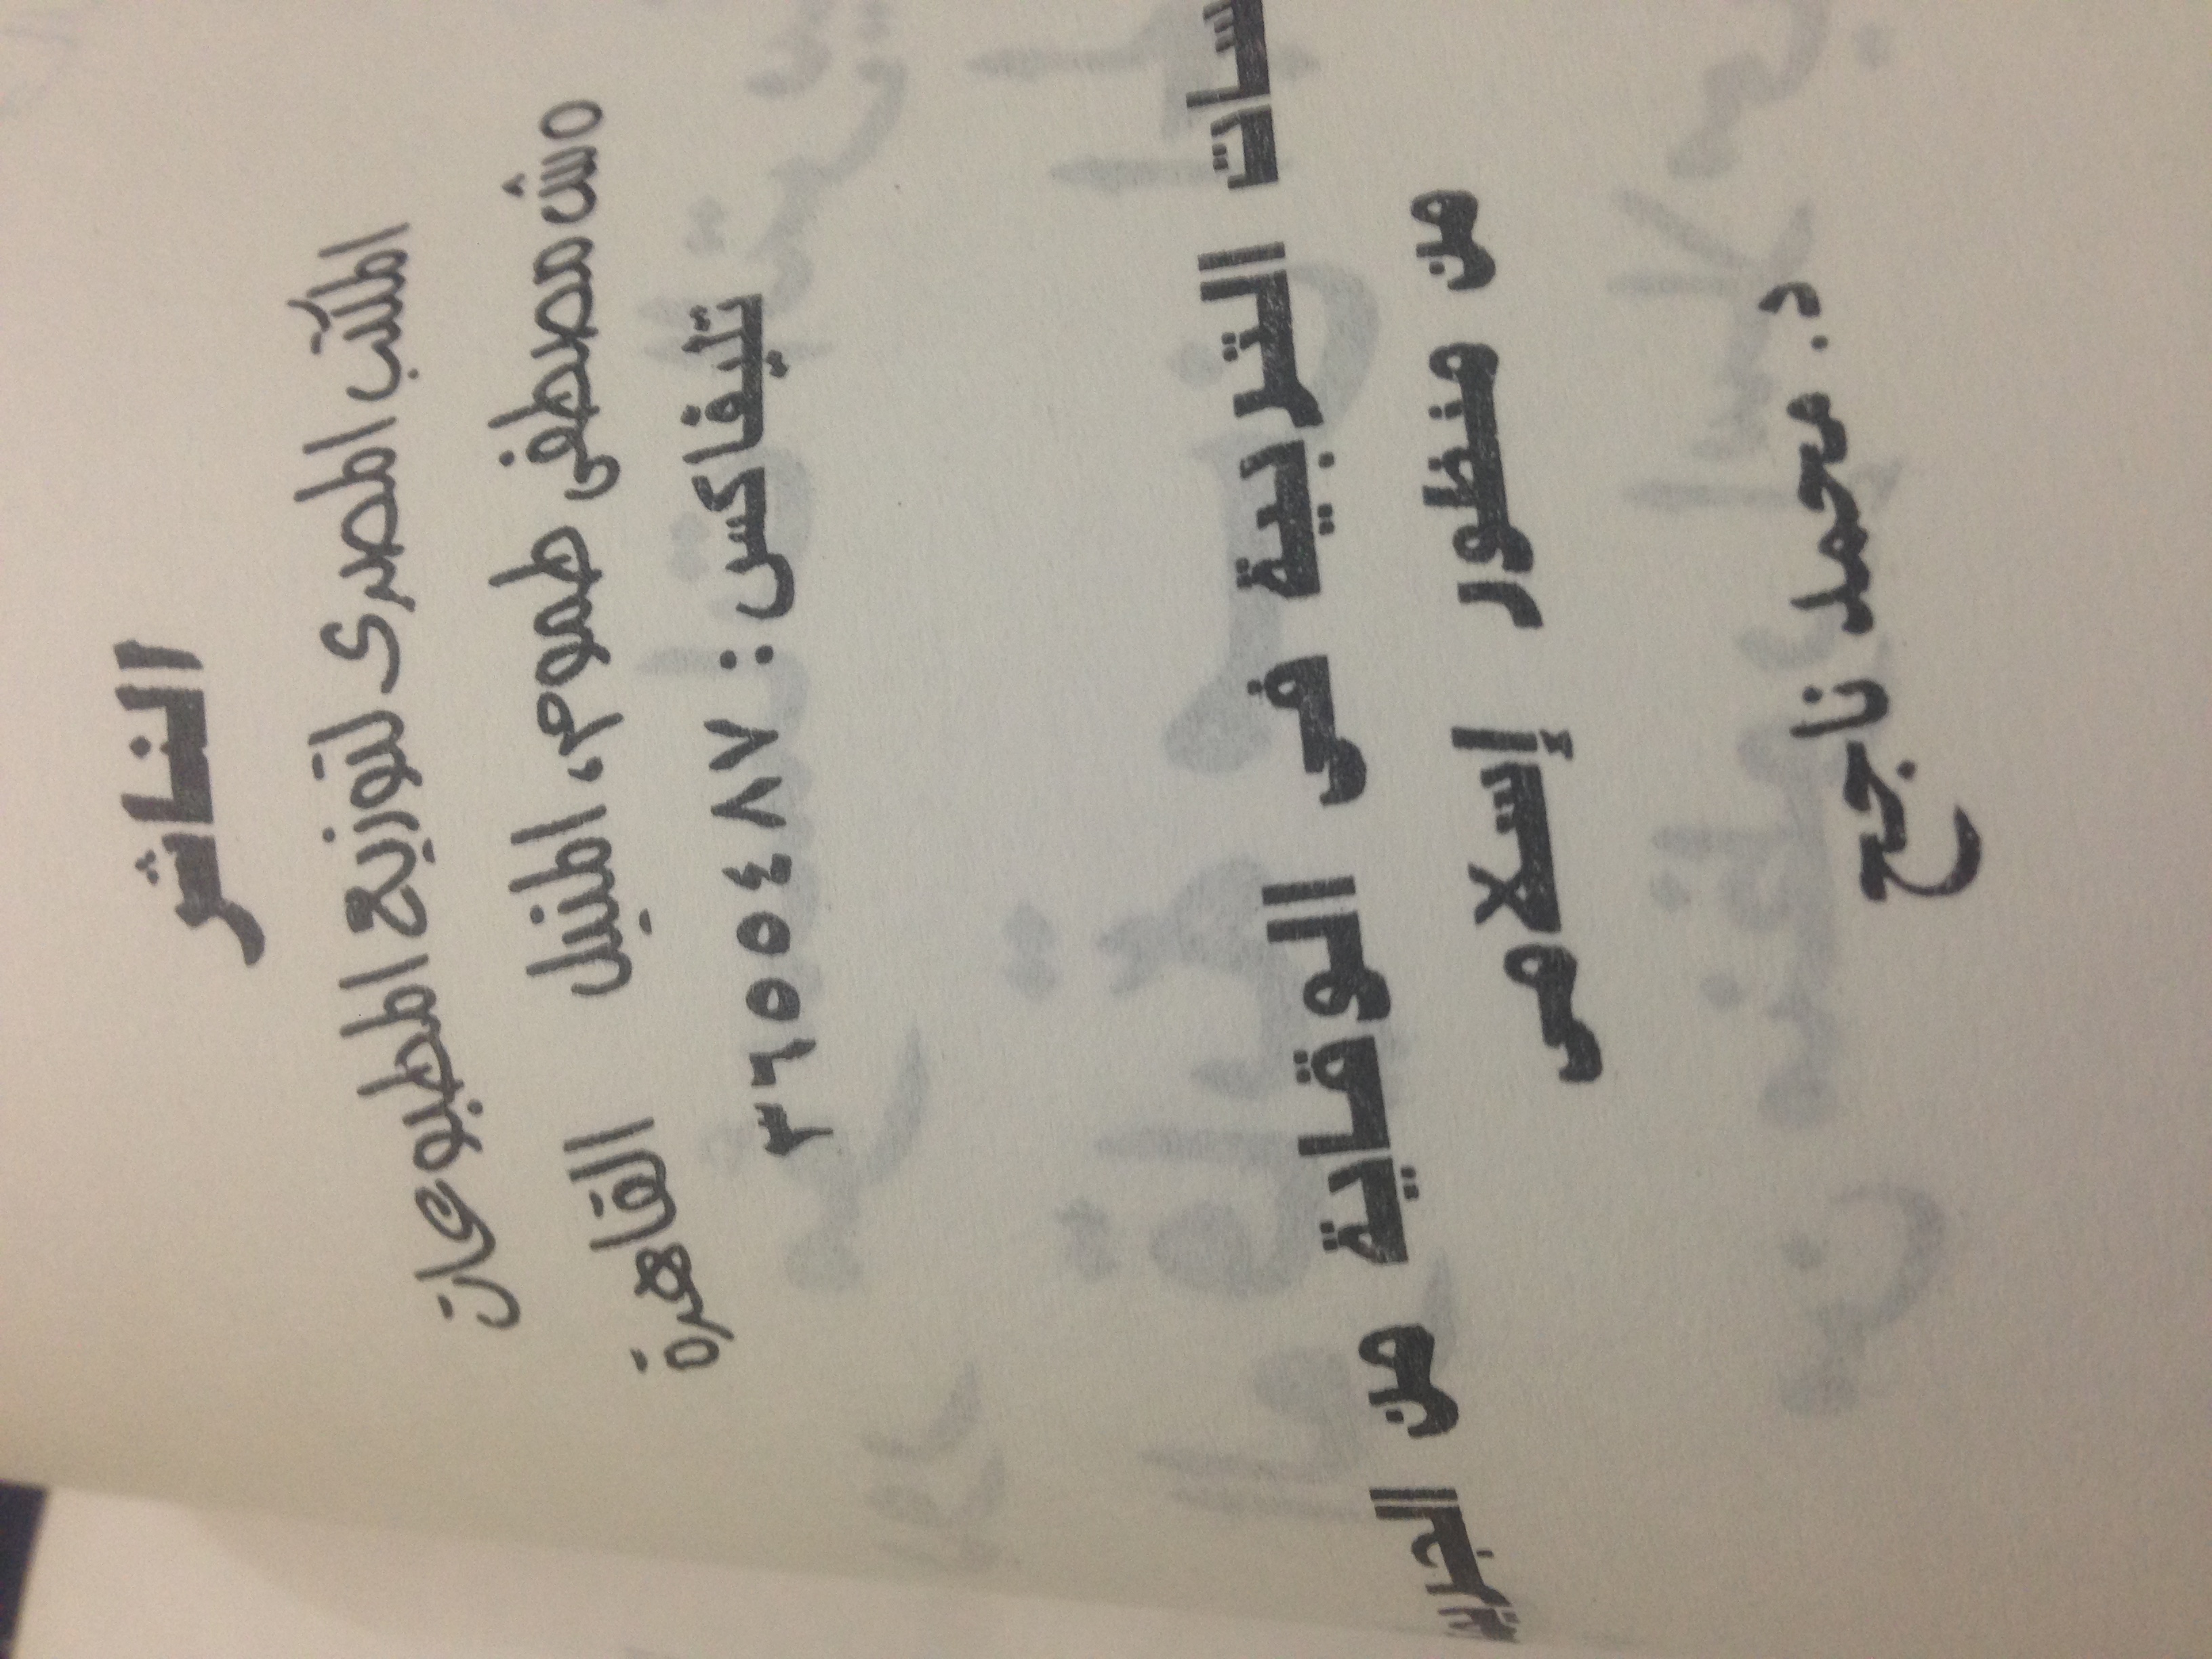 الناشر
المكتب المصرى لتوزيع المطبوعات
٥ ش مصطفى طموم، المنيل القاهرة
تليفاكس : ٣٦٥٥٤٨٧
سات التربية فى الوقاية من الجري
من منظور إسلامى
د. محمد ناجح